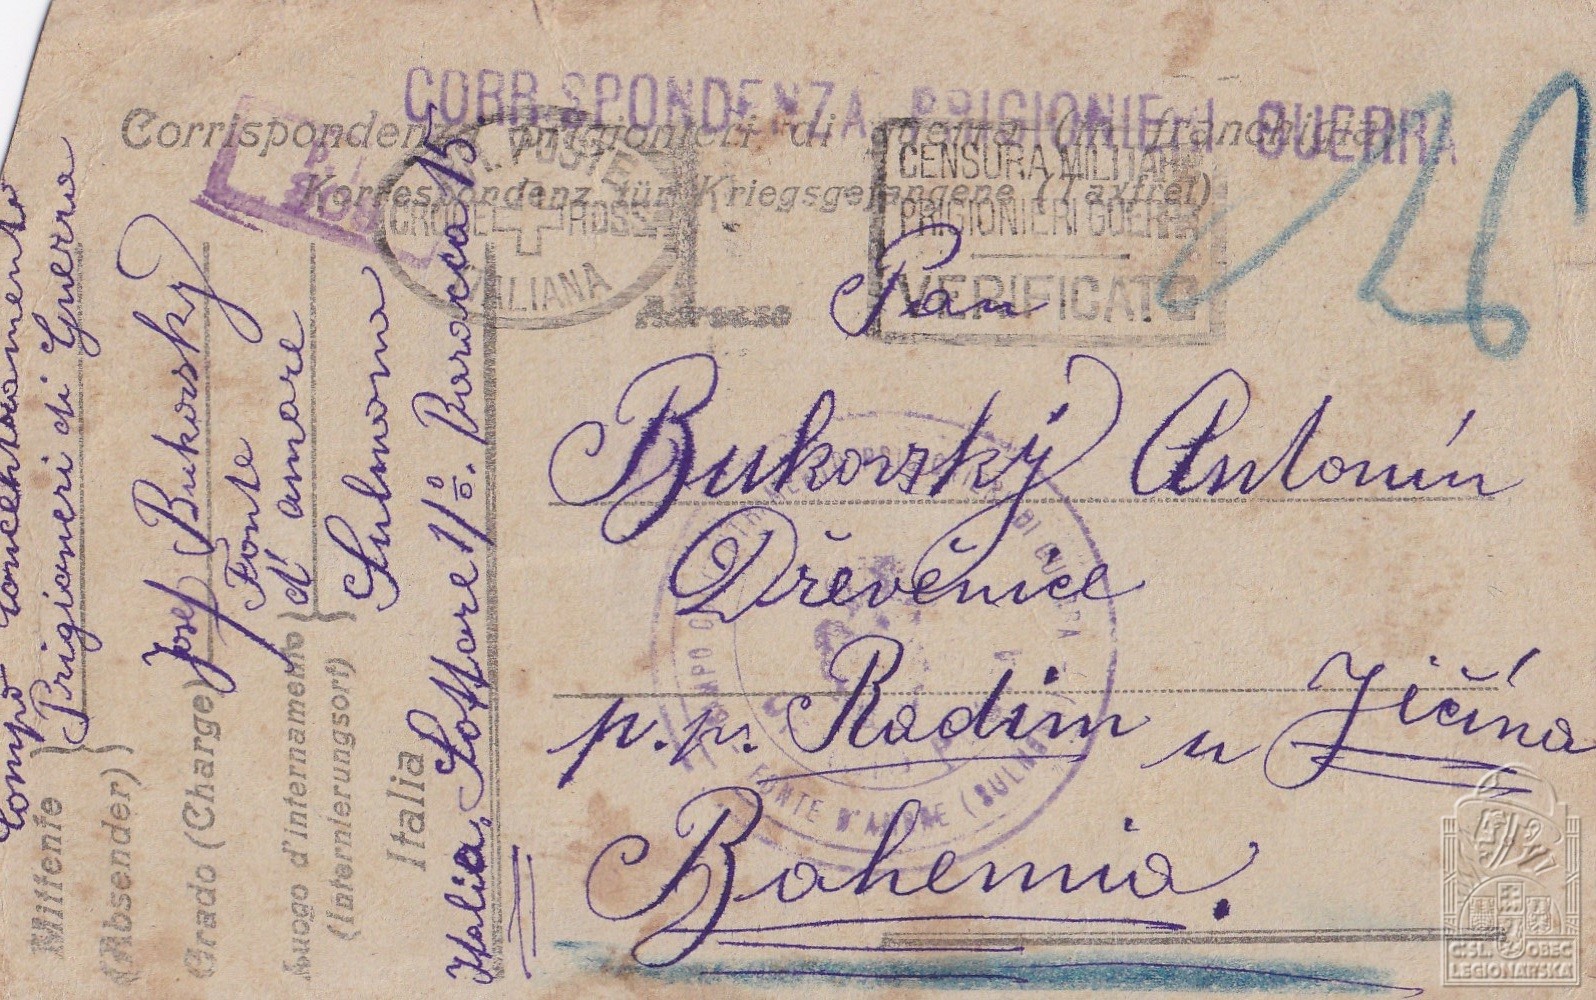 CORR SPONDENZA PRIGIONIERI GUERRA
Corrispondenza prigionieri di guerra (in franchigia)
Korrespondenz für Kriegsgefangene (Taxfrei)
R. POSTE
CROCE ROSSA
ITALIANA
CENSURA MILITARE
PRIGIONIERI GUERRA
VERIFICATO
26
Adresse
Pan
Bukovský Antonín
Dřevěnice
p. p. Radim u Jičína
Bohemia.
CAMPO
DI GUERRA
FONTE D'AMORE (SULMONA)
Compo conchtramento
Mittente } Prigioneri di Guerra
(Absender)
Grado (Charge) Josef Bukovský
Luogo d'internamento } Fonte d'amore
(Internierungsort) Sulmona
Italia
Italia. Sottore 11º. Baracca 15
ČSL. OBEC
LEGIONÁŘSKÁ